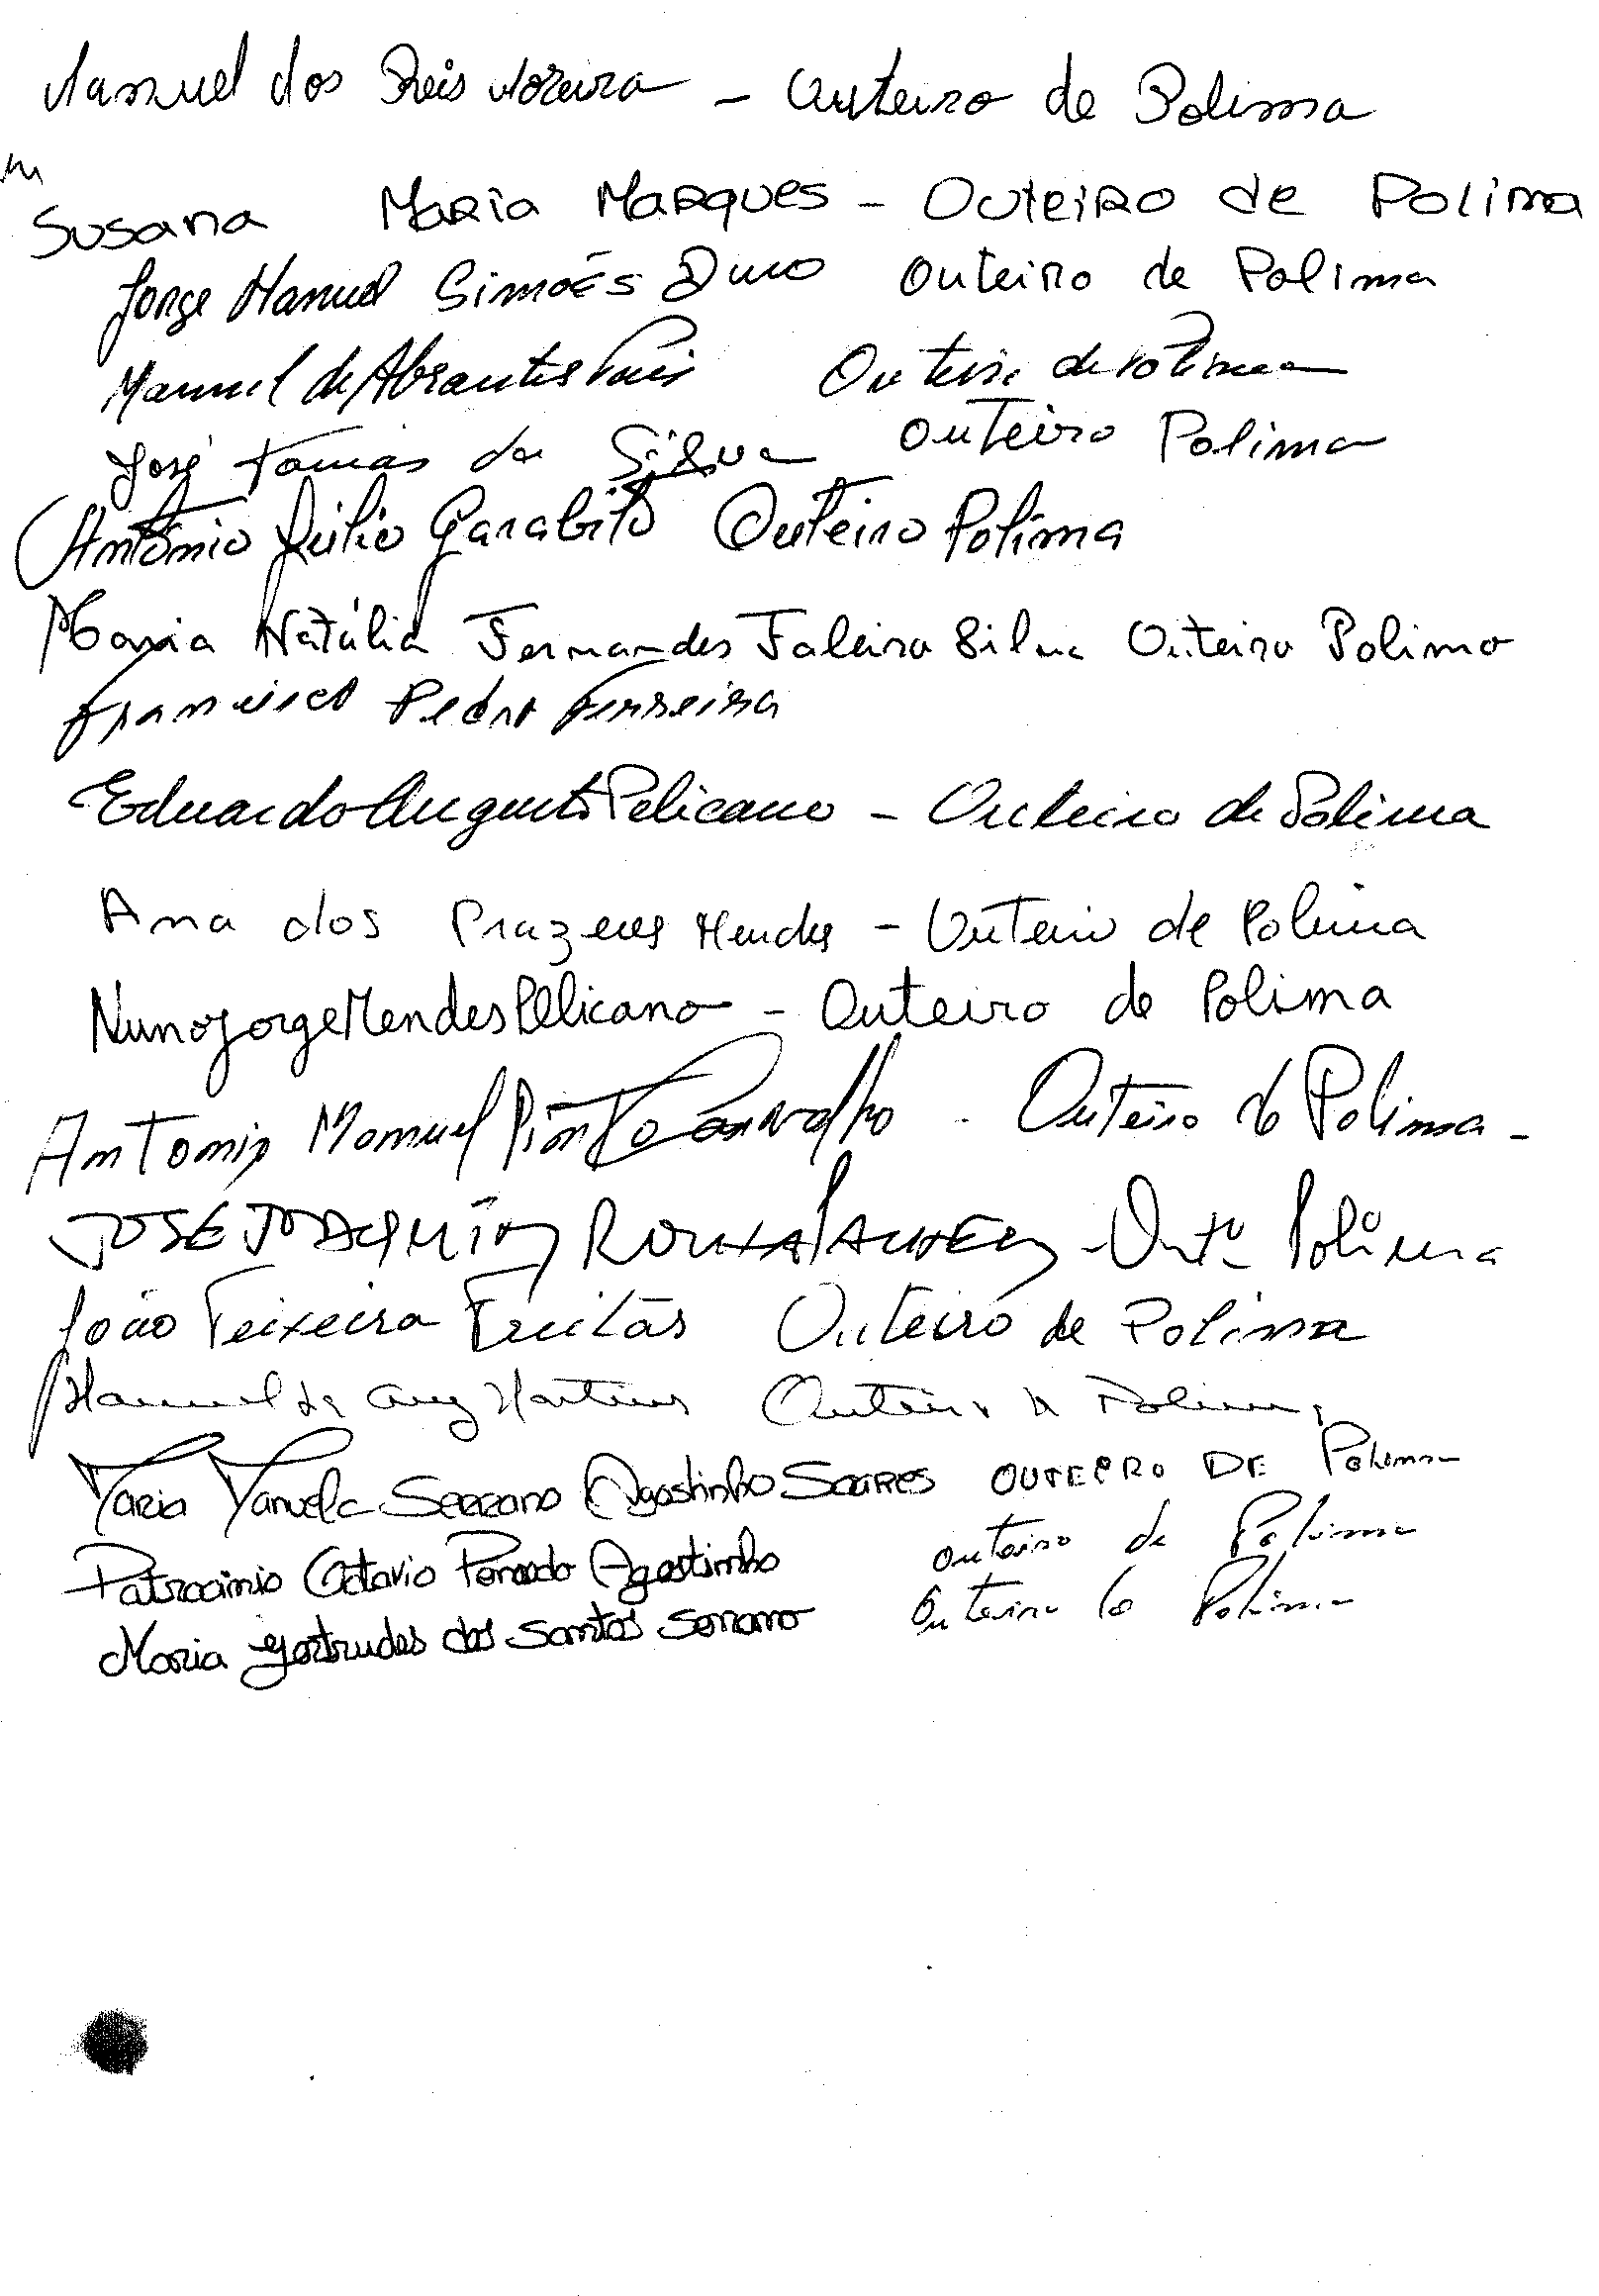 Manuel dos Reis Moreira - Outeiro de Polima
Susana Maria Marques - Outeiro de Polima
Jorge Manuel Simões Duro Outeiro de Polima
Manuel de Abrantes Pais Outeiro de Polima
José Tomás da Silva Outeiro Polima
António Júlio Garabito Outeiro Polima
Maria Natália Fernandes Faleiro Silva Outeiro Polima
Francisco Pedro Ferreira
Eduardo Augusto Pelicano - Outeiro de Polima
Ana dos Prazeres Mendes - Outeiro de Polima
Nuno Jorge Mendes Pelicano - Outeiro de Polima
Antonio Manuel Pinto Carvalho - Outeiro de Polima -
JOSÉ JOAQUIM - Outº Polima
João Teixeira Freitas Outeiro de Polima
Manuel da Cruz Martins Outeiro de Polima
Maria Manuela Serrano Agostinho Soares OUTEIRO DE Polima
Patrocinio Octavio Agostinho Outeiro de Polima
Maria Gertrudes dos Santos Serrano Outeiro de Polima